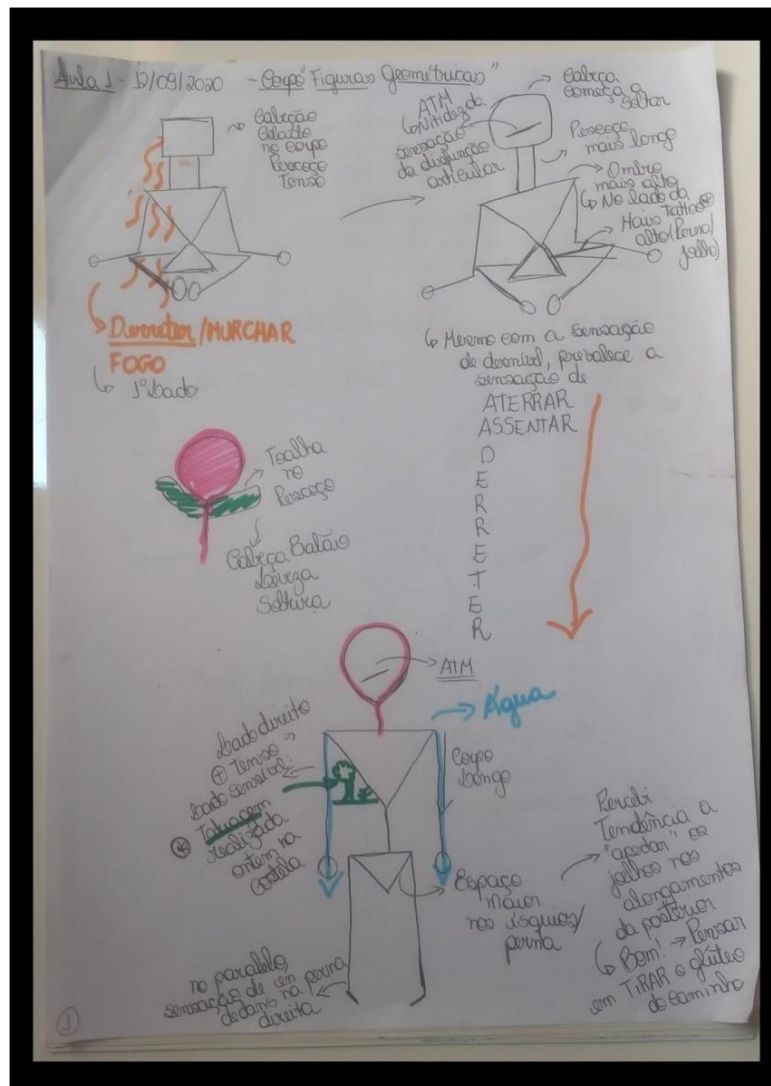 Aula 1 - 12/09/2020 - Corpo "Figuras Geométricas"
Cabeção
Colado
no corpo
Pescoço
Tenso
Derreter/MURCHAR
FOGO
1º Lado
ATM
Nitidez da
sensação
da disfunção
articular
Cabeça
começa a
soltar
Pescoço
mais longo
Ombro
mais alto
No lado da
Tattoo
Mais
alto (Perna/
joelho)
Mesmo com a sensação
de desnível, prevalece a
sensação de
ATERRAR
ASSENTAR
D
E
R
R
E
T
E
R
Toalha
no
Pescoço
Cabeça Balão
Leveza
Soltura
ATM
Água
Lado direito
+ Tenso
Lado sensível:
Tatuagem
realizada
ontem na
costela
Corpo
Longo
Espaço
maior
nos ísquios/
perna
no paralelo,
sensação de en
dedans na perna
direita
Percebi
Tendência a
"apertar" os
joelhos nos
alongamentos
da posterior
Bom! → Pensar
em TIRAR o glúteo
do caminho
1